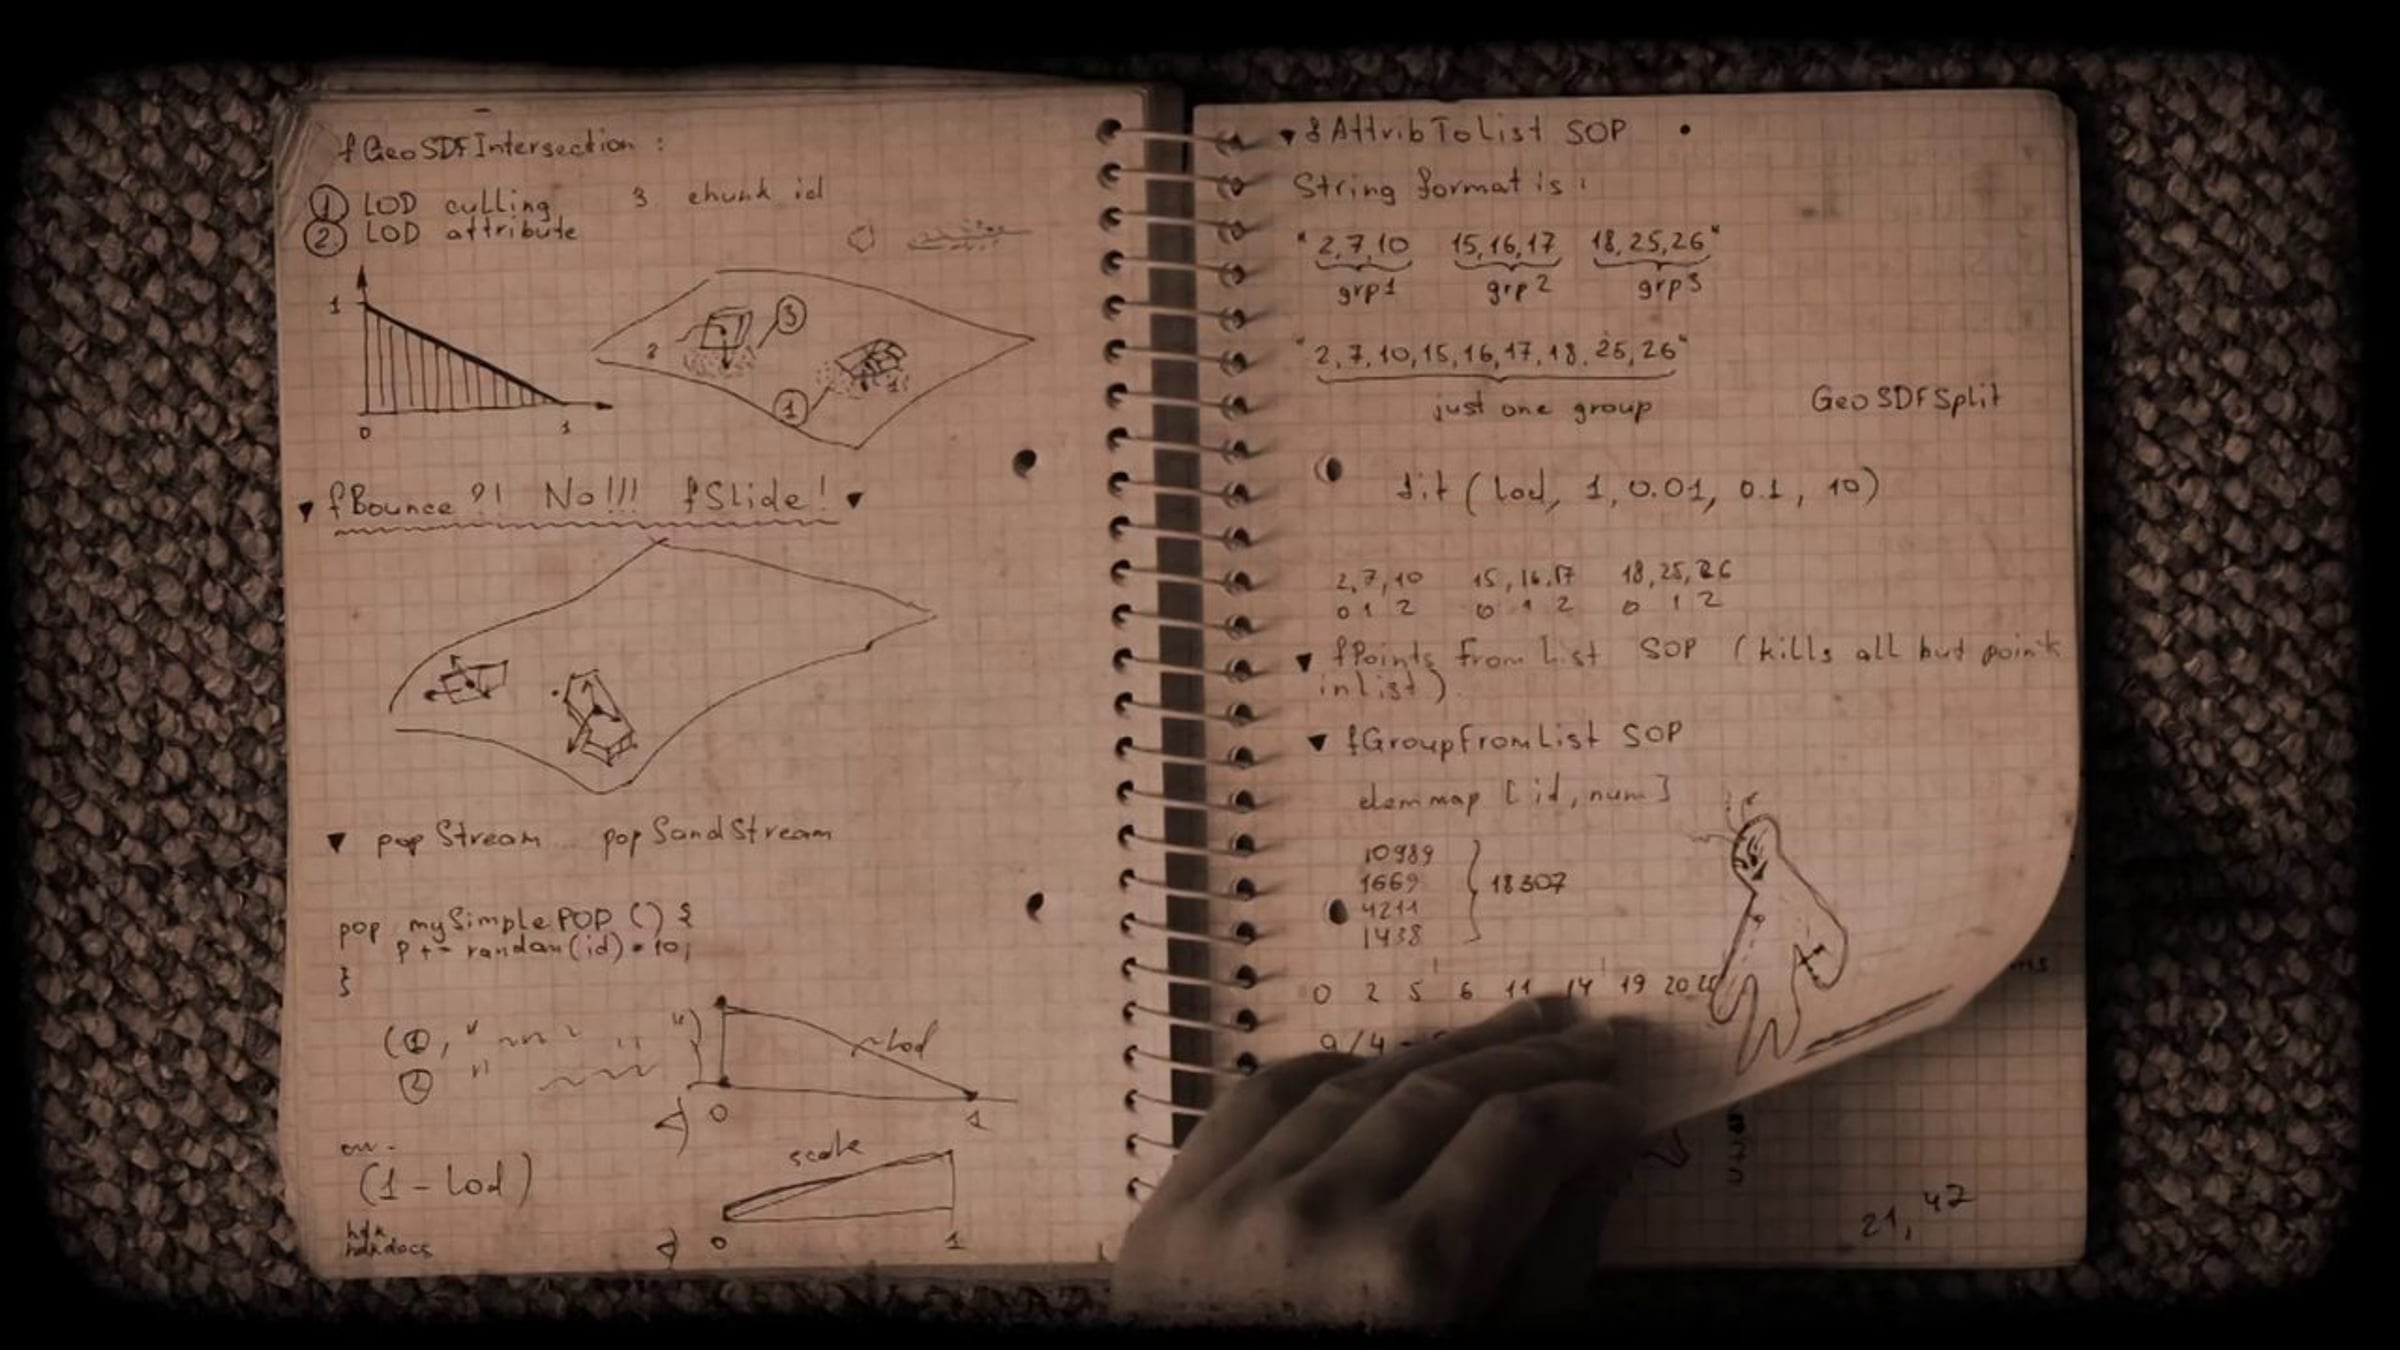 fGeoSDFIntersection :
1 LOD culling 3. chunk id
2 LOD attribute
1
3
2
1
0 1
fBounce ?! No!!! fSlide!
popStream ... popSandStream
pop mySimplePOP () {
P += random(id) * 10;
}
(1, " " )
2 "
~Lod
0 1
(1 - Lod)
scale
0 1
hdk
hdkdocs
fAttribToList SOP
String format is :
"2,7,10 15,16,17 18,25,26"
grp1 grp2 grp3
"2,7,10,15,16,17,18,25,26"
just one group
GeoSDFSplit
fit (lod, 1, 0.01, 0.1, 10)
2,7,10 15,16,17 18,25,26
0 1 2 0 1 2 0 1 2
fPoints From List SOP (kills all but point
in list).
fGroupFromList SOP
elemmap [id, num]
10989
1669
4211
1438
18307
0 2 5 6 11 14 19 20
9/4 -
21, 42